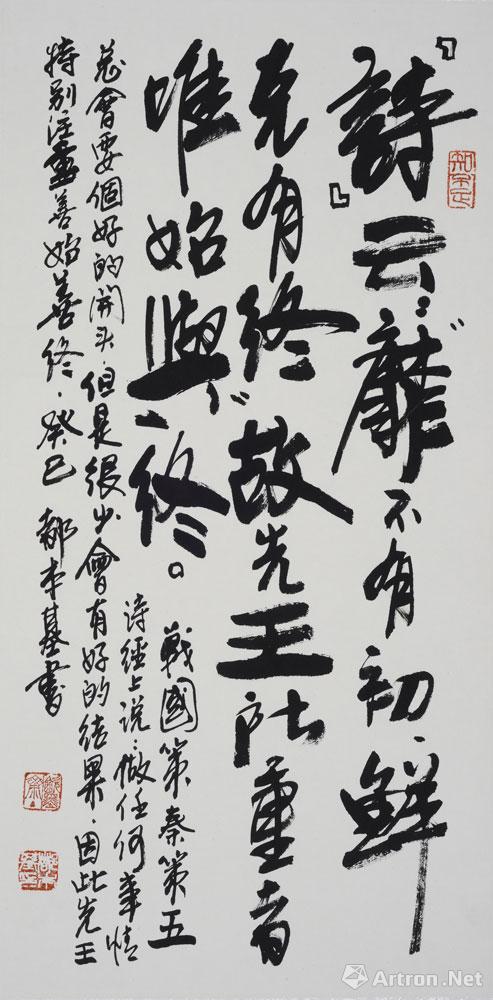 『詩』云：“靡不有初、鮮
克有終”故先王所重者
唯始與、終。戰國策秦策五
诗經上说、做任何事情
总會要個好的開头、但是很少會有好的结果、因此先王
特别注重善始善终、癸巳 都本基書
Artron.Net